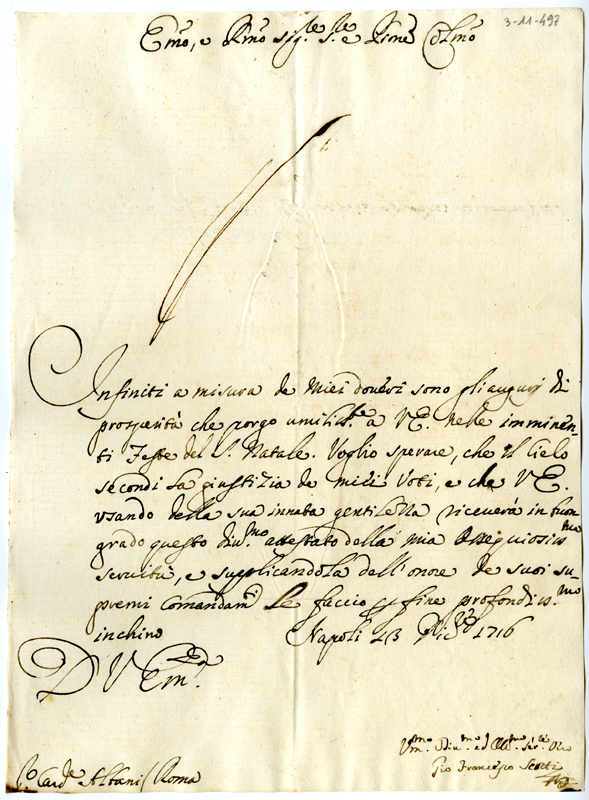 3-11-497
Emo, e Rmo Sig.re S.re e Prone Colmo
Infiniti a misura de miei doueri sono gli augurj di
prosperità che porgo umilis.te a VE. nelle imminen-
ti Feste del S. Natale. Voglio sperare, che il Cielo
secondi la giustizia de miei Voti, e che VE.
usando della sua innata gentilezza riceuerà in buon
grado questo diu.mo attestato della mia ossequiosis.ma
seruitù, e supplicandola dell'onore de suoi su-
premi Comandam.i le faccio p fine profondis.mo
inchino Napoli 13 Xbre 1716
D V Em.za
Um.mo Diu.mo ed Obl.mo Ser.re Vero
Gio Francesco Scotti
So Card.e Albani / Roma